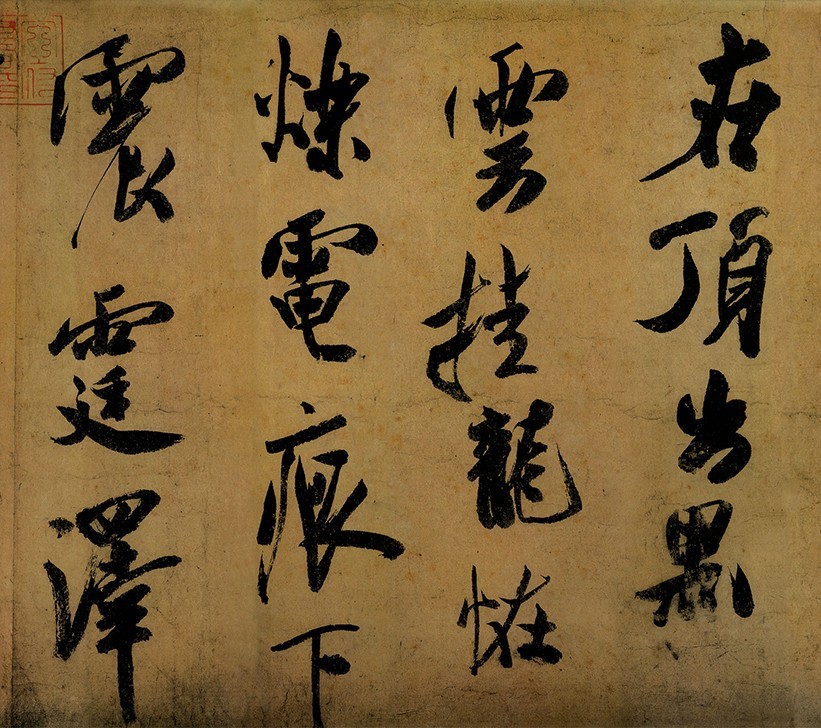 在頂出黑
雲挂龍恠
爍電痕下
震霆澤